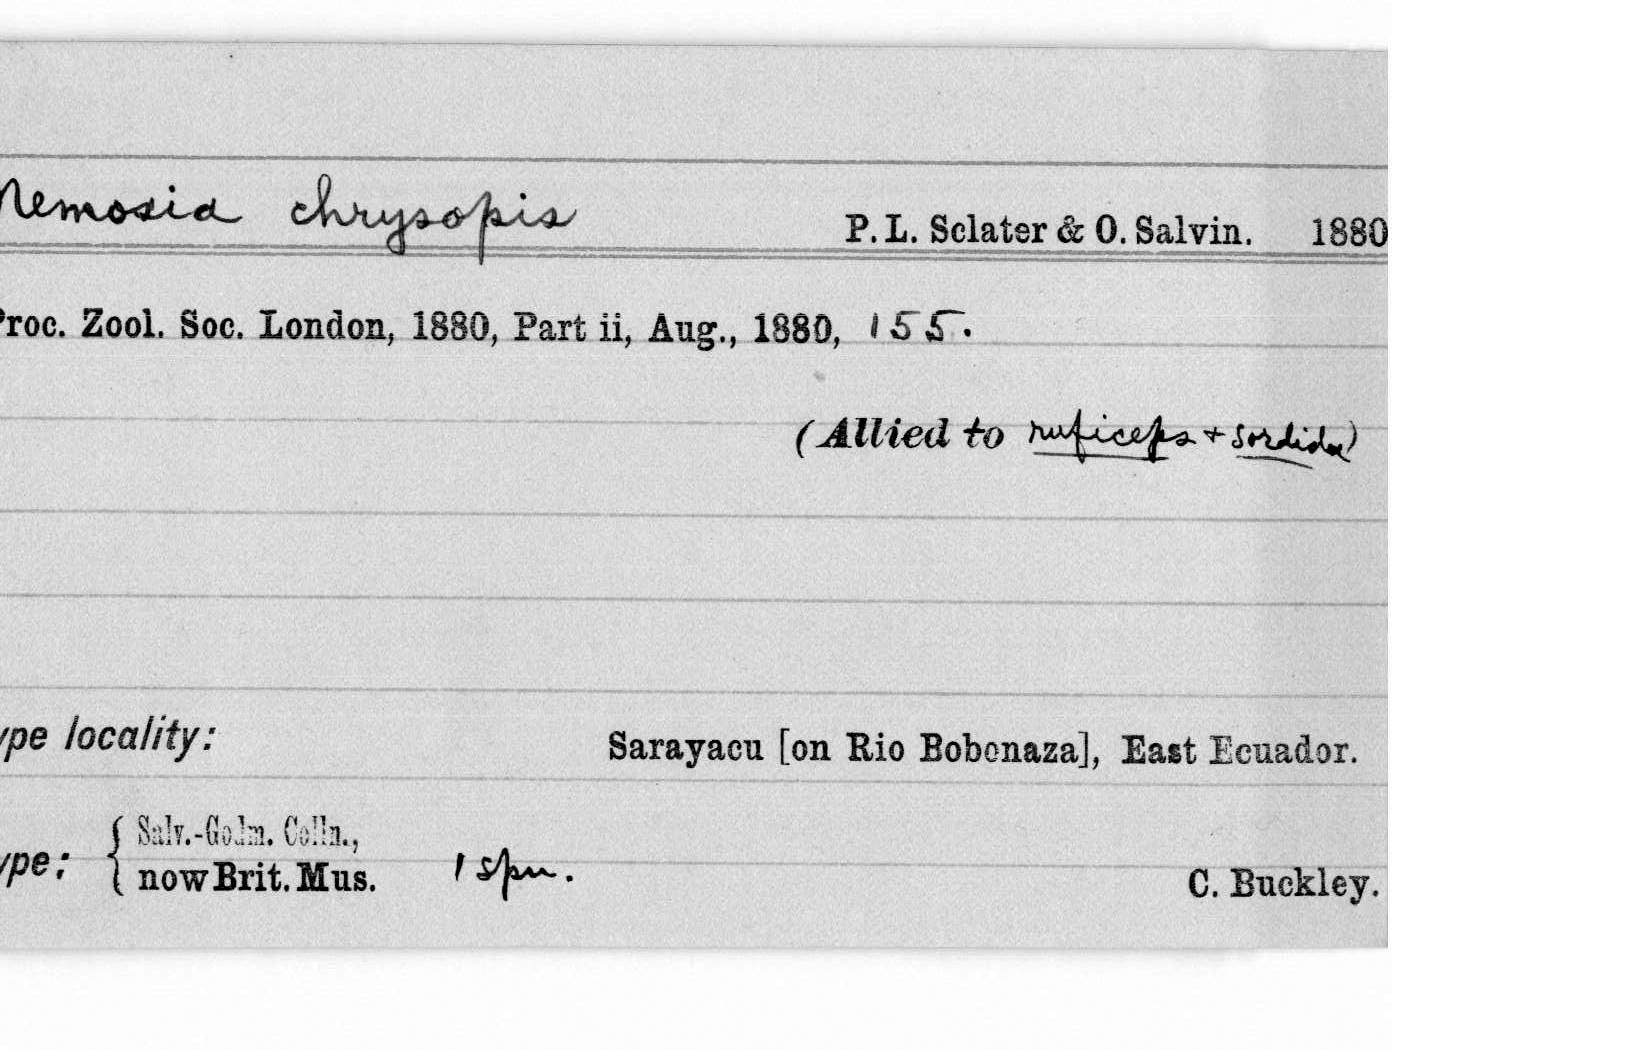 Nemosia chrysopis P. L. Sclater & O. Salvin. 1880
Proc. Zool. Soc. London, 1880, Part ii, Aug., 1880, 155.
(Allied to ruficeps + sordida)
ype locality: Sarayacu [on Rio Bobonaza], East Ecuador.
Salv.-Godm. Colln.,
ype: { now Brit. Mus. 1 spm. C. Buckley.